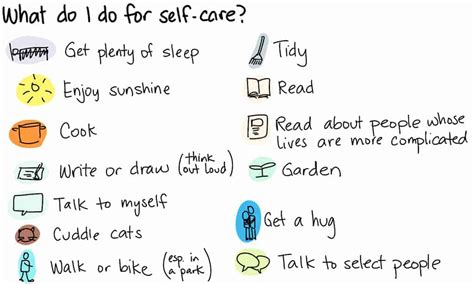 What do I do for self-care?
Get plenty of sleep
Enjoy sunshine
Cook
Write or draw (think out loud)
Talk to myself
Cuddle cats
Walk or bike (esp. in a park)
Tidy
Read
Read about people whose
lives are more complicated
Garden
Get a hug
Talk to select people